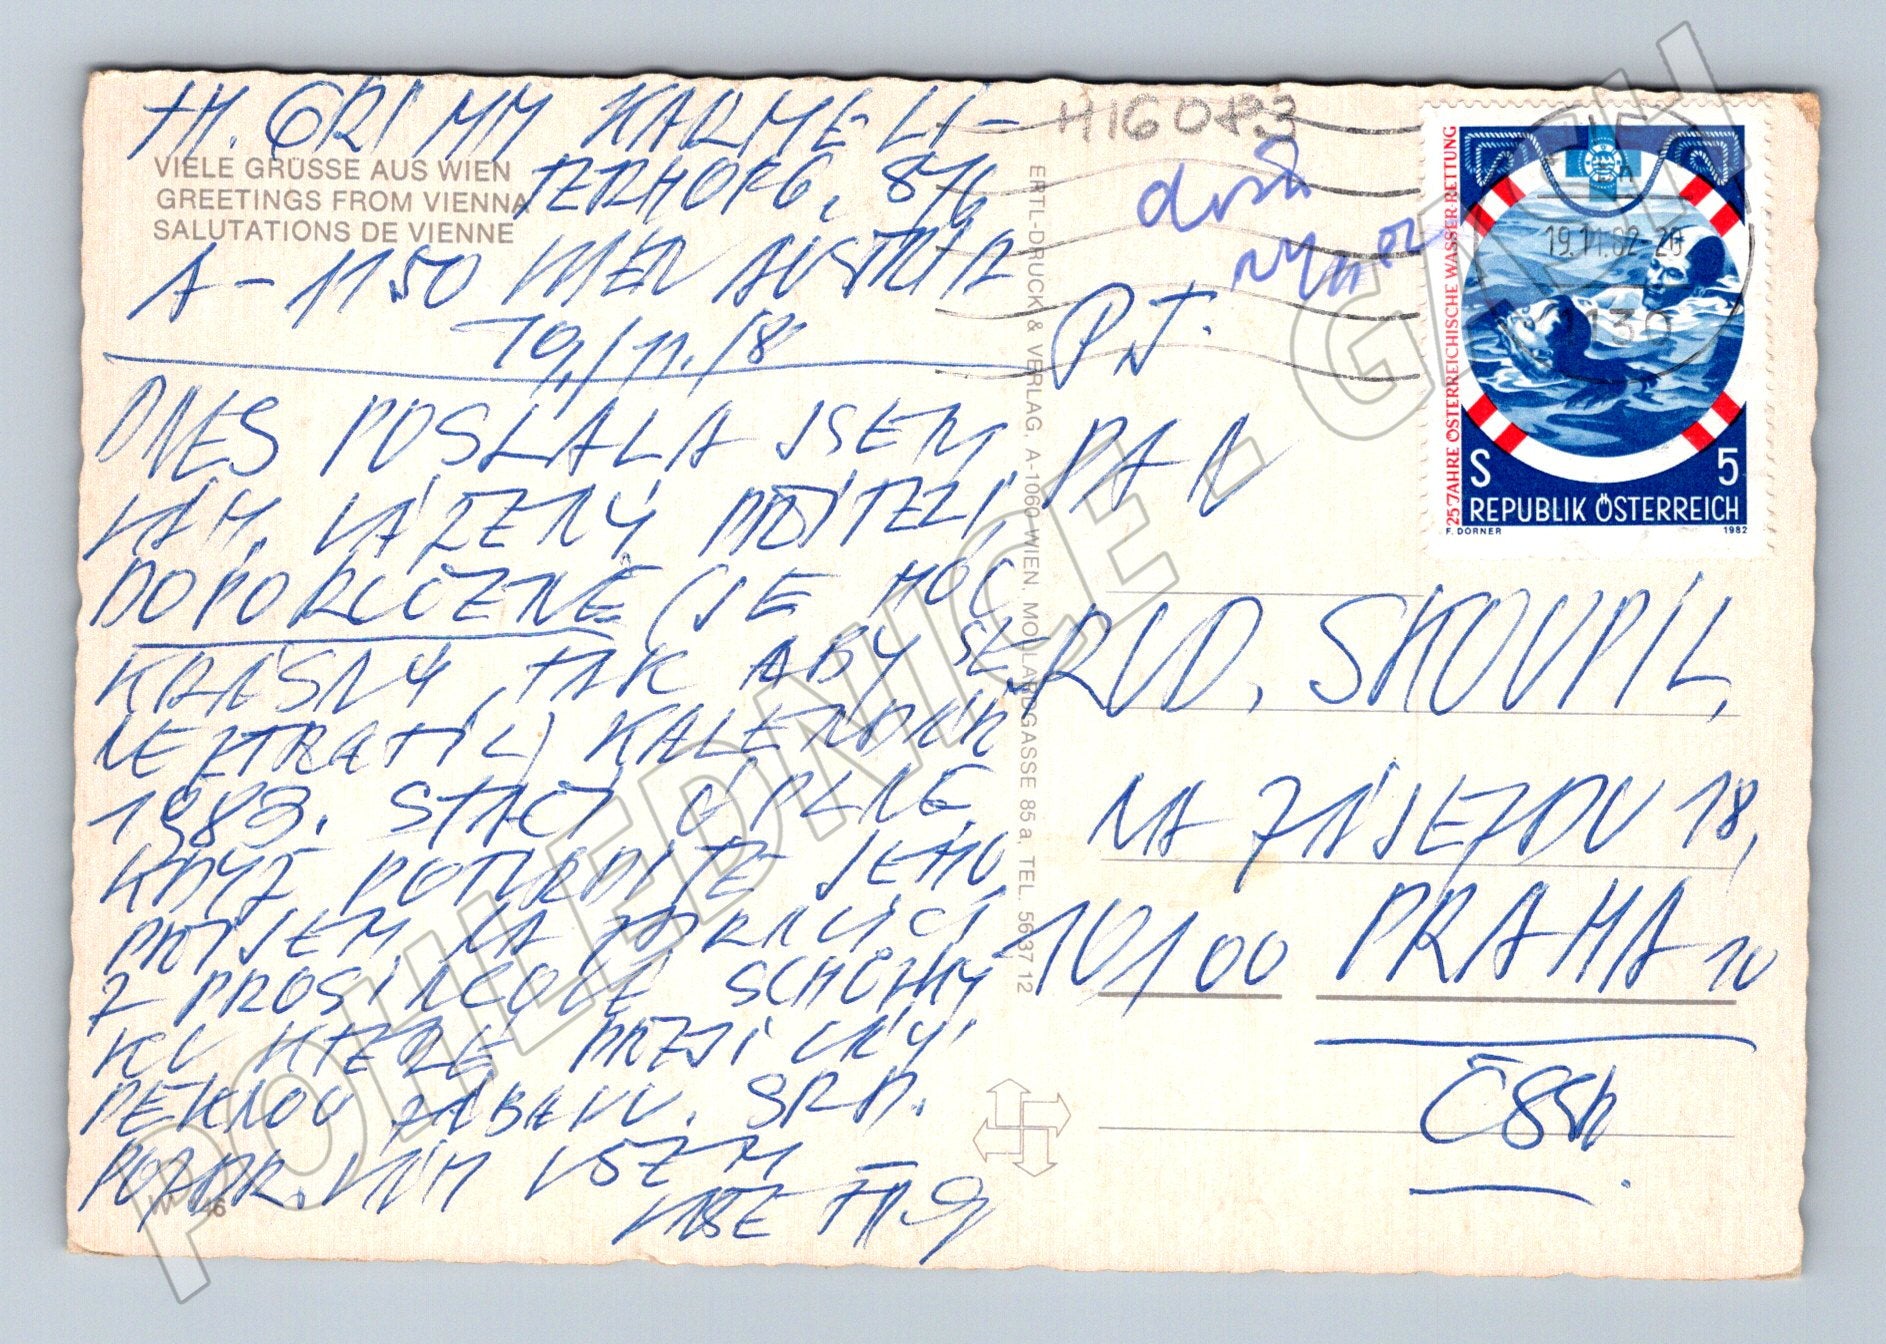 TH. GRIMM KARMELI-
TERHOFG. 8/6
VIELE GRÜSSE AUS WIEN
GREETINGS FROM VIENNA
SALUTATIONS DE VIENNE
A-1150 WIEN AUSTRIA
19./11./8
DNES POSLALA JSEM
VÁM, VÁŽENÝ PŘÍTELI,
DOPORUČENĚ (JE MOC
KRÁSNÝ, TAK ABY SE
NEZTRATIL) KALENDÁŘ
1983. STAČÍ ÚPLNĚ,
KDYŽ POTVRDÍTE JEHO
PŘÍJEM NA
Z PROSINCOVÉ SCHŮZKY
KU KTERÉ PŘEJI
PĚKNOU ZÁBAVU. SRD.
POZDR. VÁM VŠEM
VAŠE
W 46
ERTL-DRUCK & VERLAG, A-1060 WIEN, MOLLARDGASSE 85a, TEL. 56 37 12
H16083
došl
P.T.
PAN
RUD. SKOUPIL,
NA ZÁJEZDU 18,
10100 PRAHA 10
ČSSR.
25 JAHRE ÖSTERREICHISCHE WASSER-RETTUNG
19.11.82-20
1130
S 5
REPUBLIK ÖSTERREICH
F. DORNER 1982
POHLEDNICE.GASH